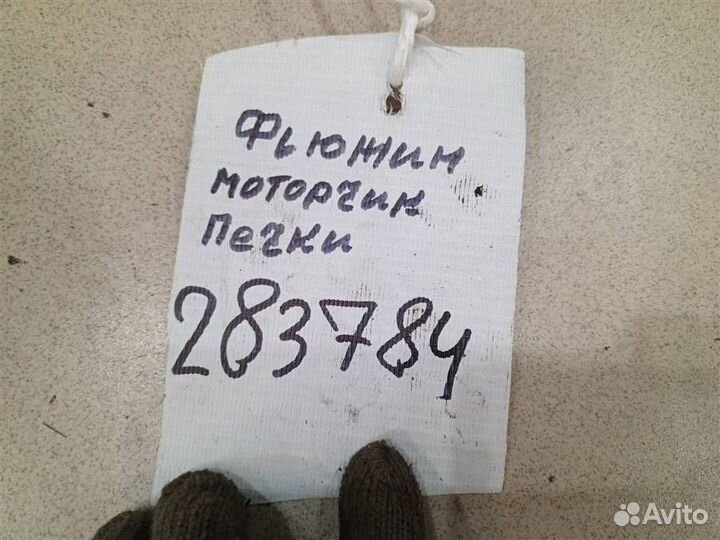 Фьюжин
моторчик
печки
283784
Avito